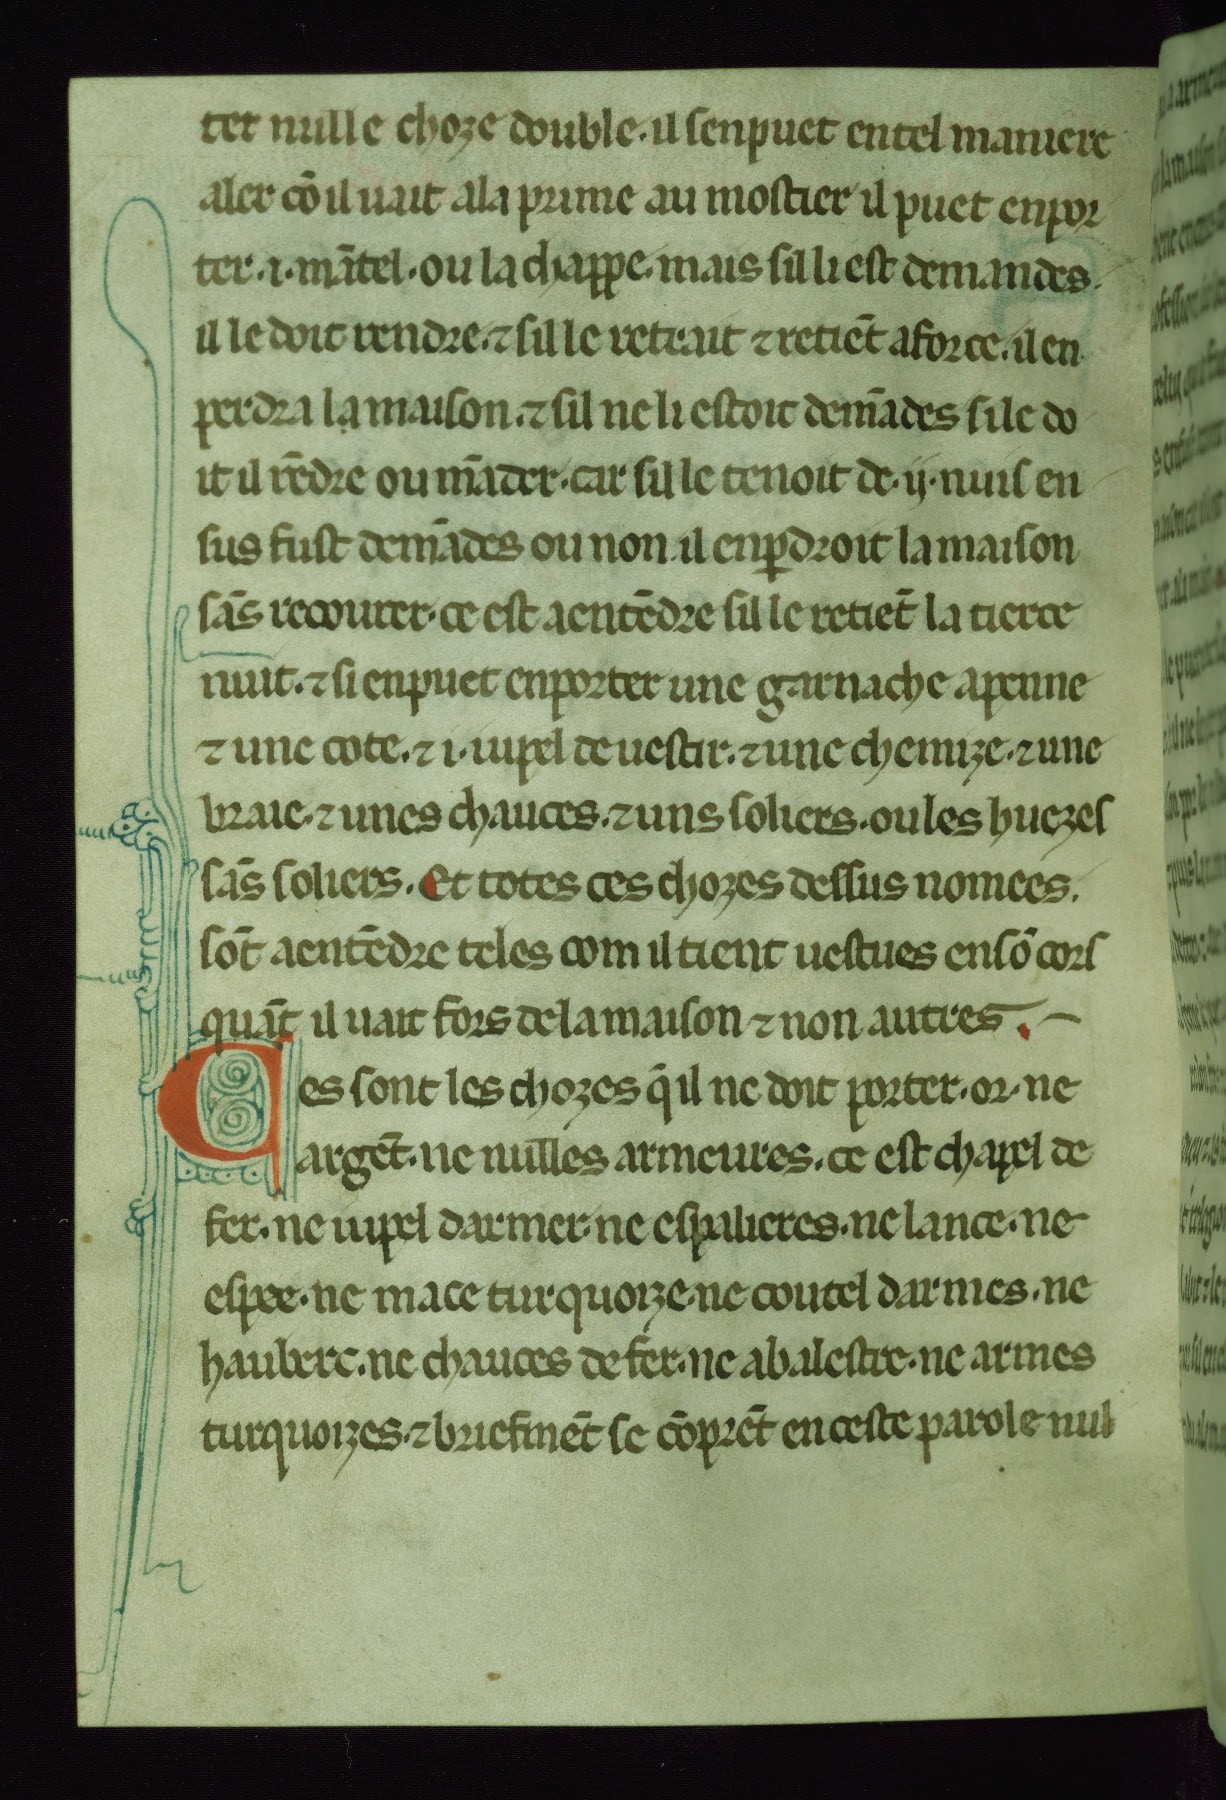 ter nulle choze double · il senpuet en tel maniere
aler cō il uait ala prime au mostier il puet enpor
ter · i · mātel · ou la chappe · mais sil li est demandes ·
il le doit rendre · ⁊ sil le retrait ⁊ retiēt a force · il en
perdra la maison · ⁊ sil ne li estoit demādes si le do
it il rēdre ou māder · car sil le tenoit de · ij · nuis en
sus fust demādes ou non · il enꝑdroit la maison
sās recourer · ce est a entēdre sil le retiēt la tierce
nuit · ⁊ si enpuet enporter une garnache a penne
⁊ une cote · ⁊ · i · iupel de uestir · ⁊ une chemize · ⁊ une
braie · ⁊ unes chauces · ⁊ uns soliers · ou les huezes
sās soliers · Et totes ces chozes dessus nomees ·
sōt a entēdre teles com il tient uestues en sō cors
quāt il uait fors de la maison ⁊ non autres ·
Ces sont les chozes q̄ il ne doit porter · or · ne
argēt · ne nulles armeures · ce est chapel de
fer · ne iupel darmer · ne espalieres · ne lance · ne
espee · ne mace turquoize · ne coutel darmes · ne
hauberc · ne chauces de fer · ne abalestre · ne armes
turquoizes · ⁊ briefmēt se cōprēt en ceste parole nul